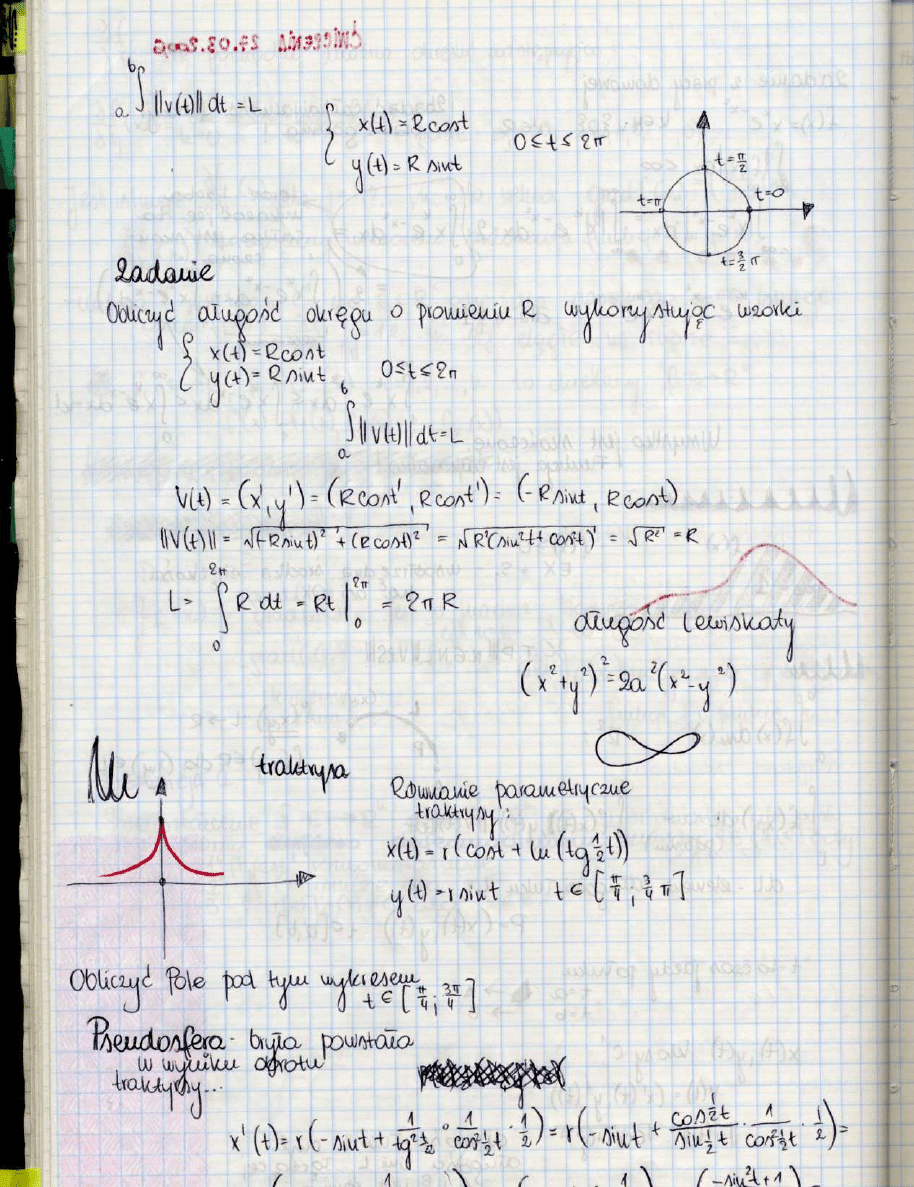 ĆWICZENIA 27.03.2006
a∫b ||V(t)|| dt = L
{ x(t) = R cost
y(t) = R sint
0 ≤ t ≤ 2π
t=π/2
t=π
t=0
t=3/2 π
Zadanie
Obliczyć długość okręgu o promieniu R wykorzystując wzorki
{ x(t) = R cost
y(t) = R sint 0 ≤ t ≤ 2π
a∫b ||V(t)|| dt = L
V(t) = (x', y') = (R cost', R cost') = (-R sint, R cost)
||V(t)|| = √((-R sint)² + (R cost)²) = √(R²(sin²t + cos²t)) = √R² = R
L = 0∫2π R dt = Rt |0 2π = 2π R
długość lewiskaty
(x²+y²)² = 2a²(x²-y²)
traktrysa
Równanie parametryczne
traktrysy:
x(t) = r(cost + ln(tg 1/2 t))
y(t) = r sint t ∈ [π/4 ; 3/4 π]
Obliczyć Pole pod tym wykresem
t ∈ [π/4 ; 3π/4]
Pseudosfera - bryła powstała
w wyniku obrotu
traktrysy...
x'(t) = r(-sint + 1/tg 1/2 t · 1/cos² 1/2 t · 1/2) = r(-sint + cos 1/2 t / sin 1/2 t · 1/cos² 1/2 t · 1/2) =